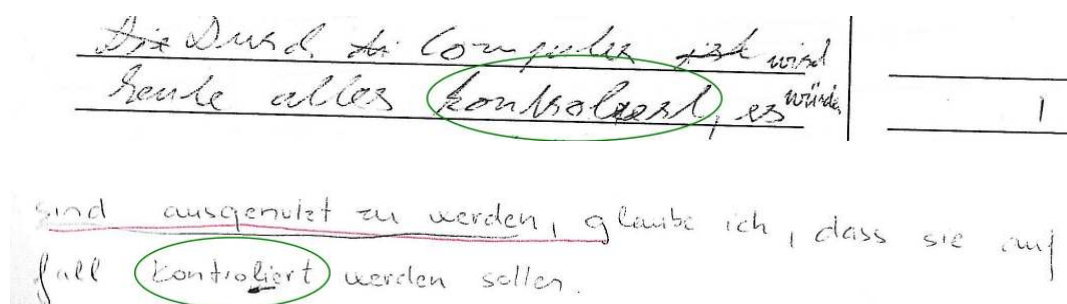 Die Durch die Computer ist wird
heute alles kontroliert, es würde
1
sind ausgenutzt zu werden, glaube ich, dass sie auf
fall kontroliert werden sollen.